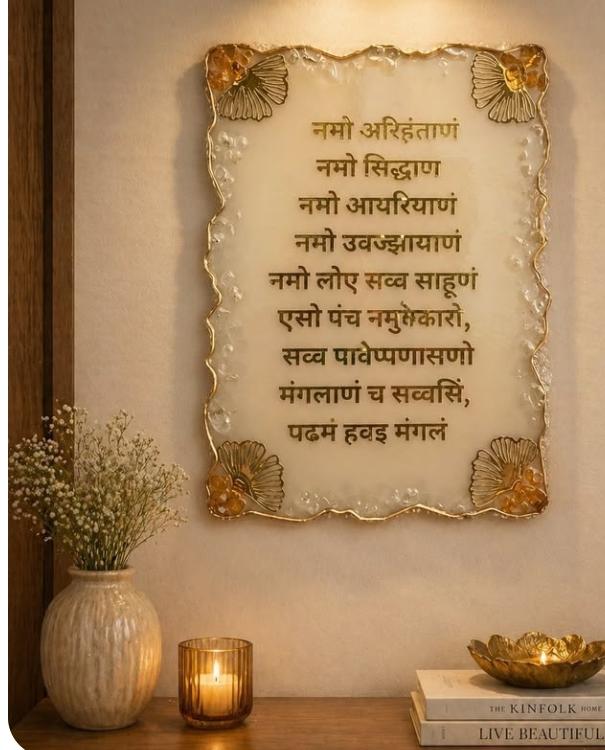 नमो अरिहंताणं
नमो सिद्धाण
नमो आयरियाणं
नमो उवज्झायाणं
नमो लोए सव्व साहूणं
एसो पंच
सव्व पावेप्पणासणो
मंगलाणं च सव्वसिं,
पढमं हवइ मंगलं
THE KINFOLK HOME
LIVE BEAUTIFUL